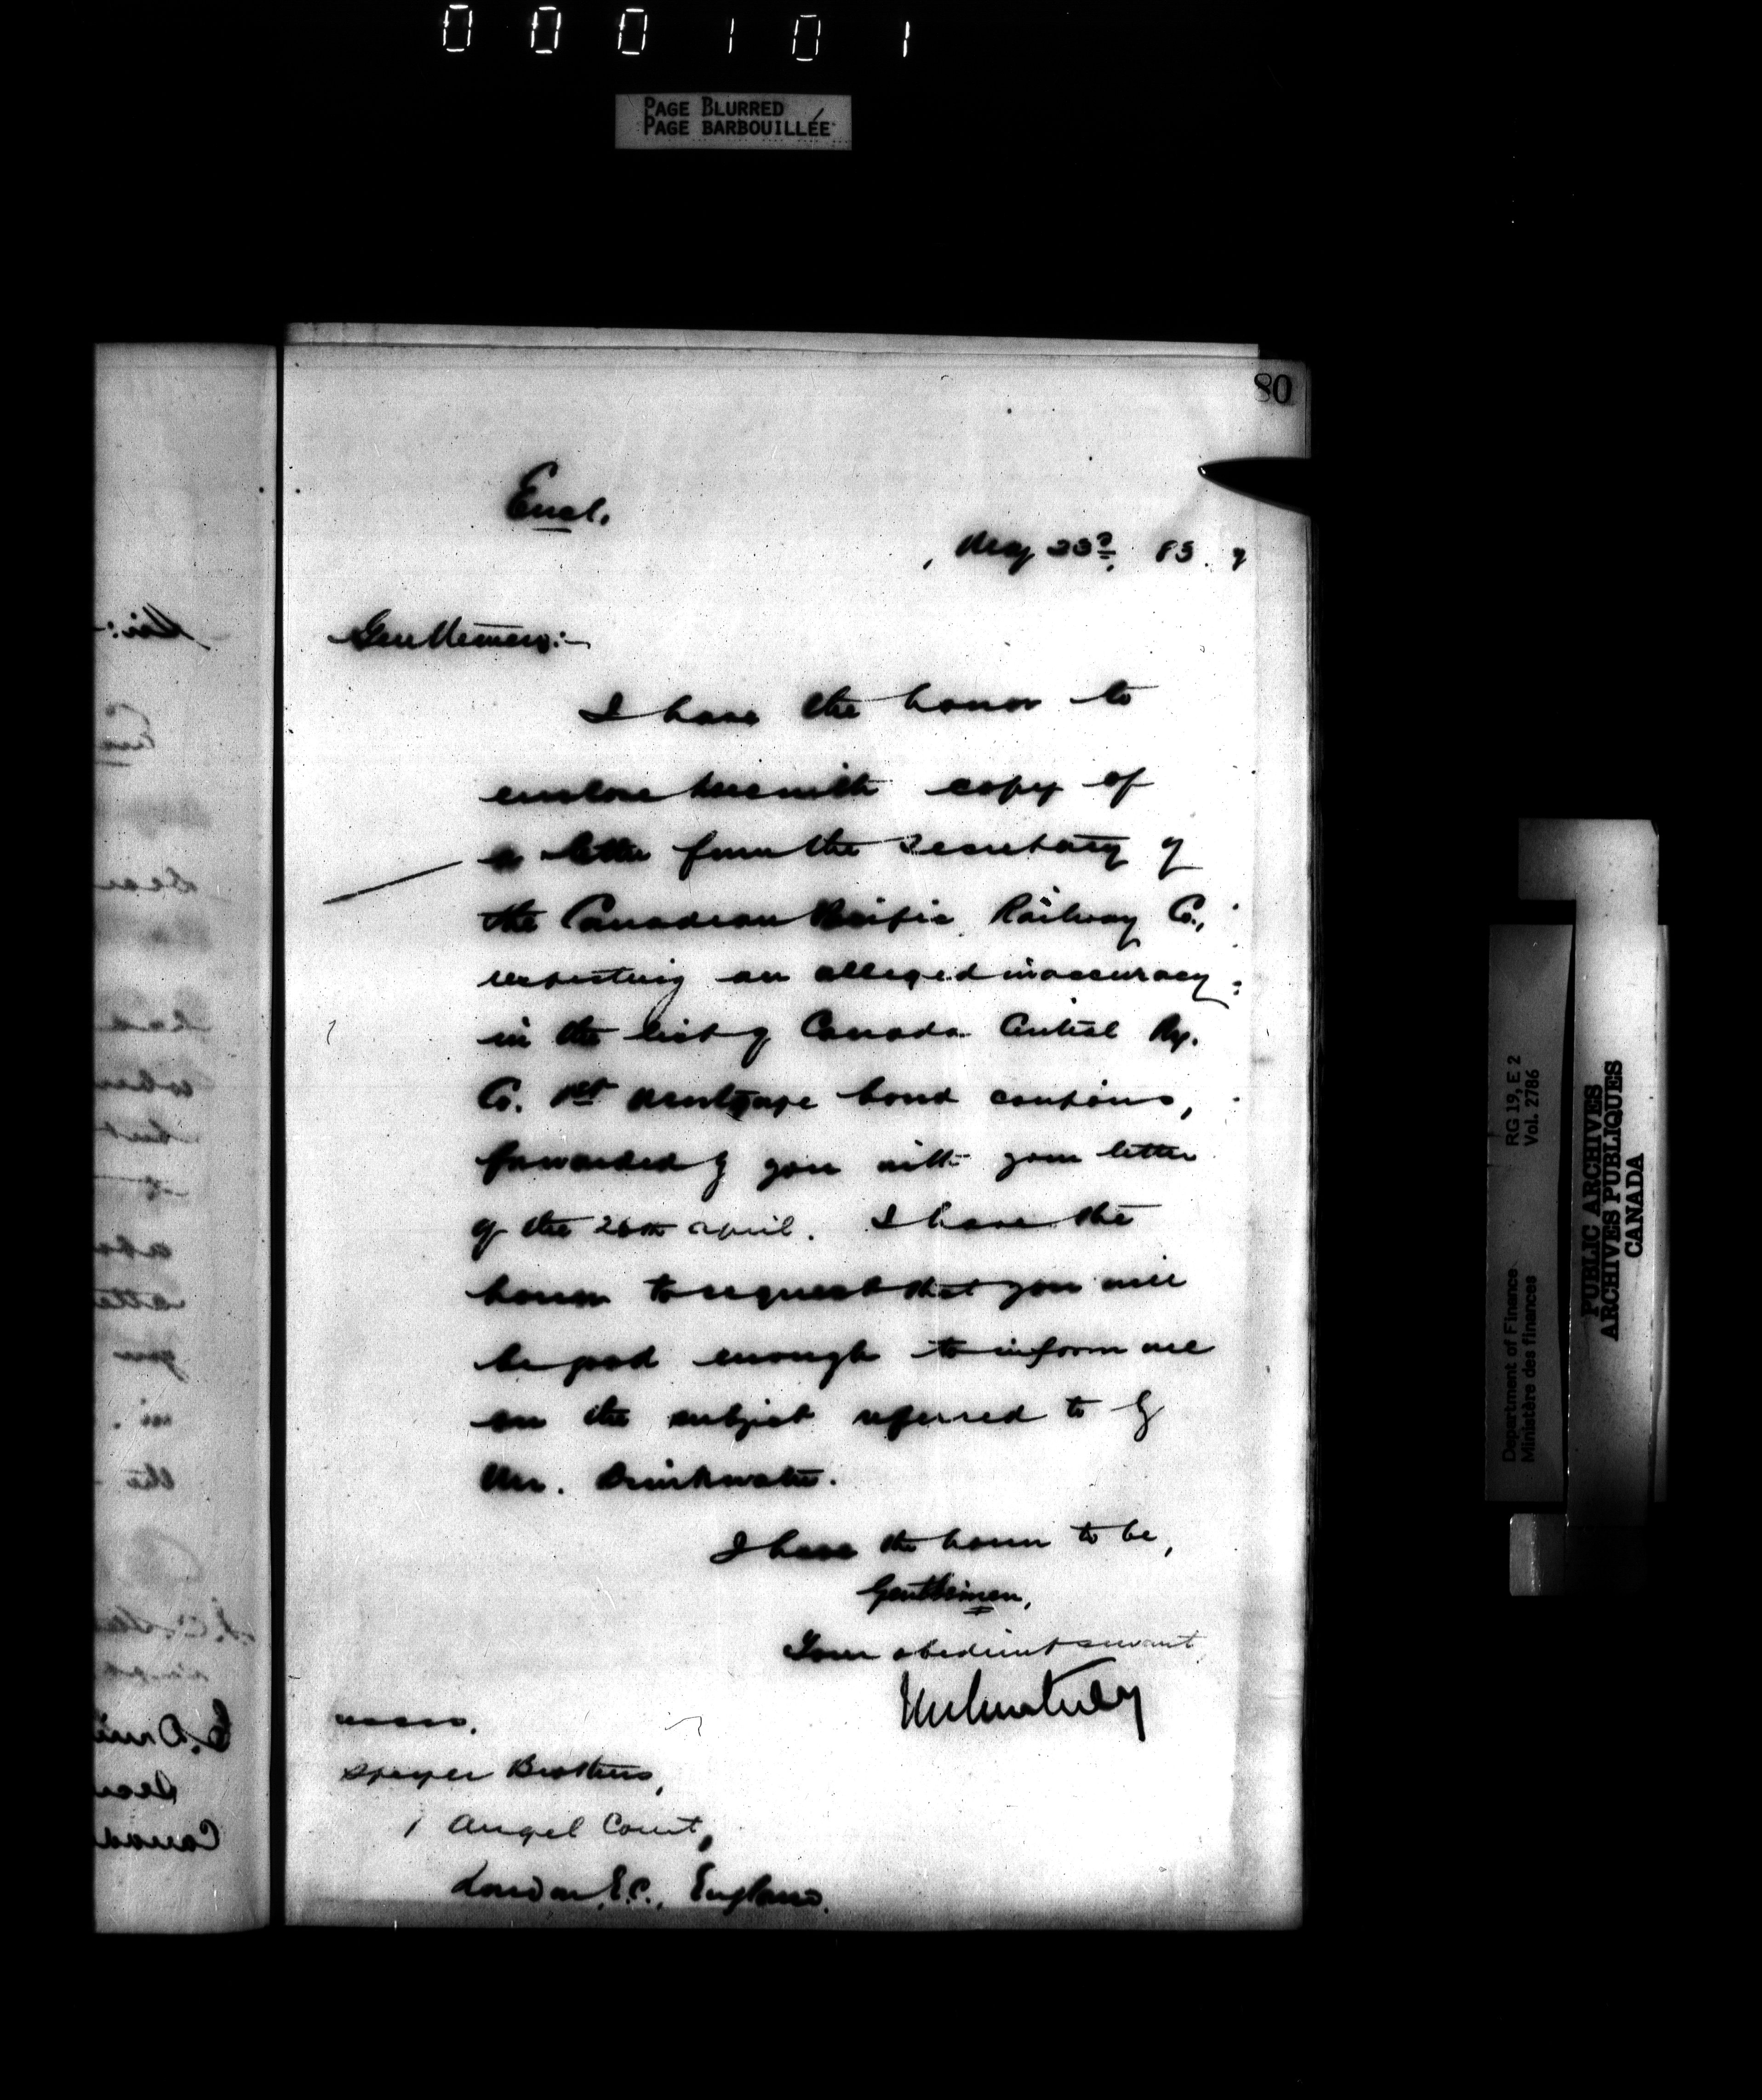 000101
PAGE BLURRED
PAGE BARBOUILLÉE
80
Encl.
May 23d, 83.
Gentlemen:-
I have the honor to
enclose herewith copy of
a letter from the Secretary of
the Canadian Pacific Railway Co.,
respecting an alleged inaccuracy
in the list of Canada Central Ry.
Co. 1st Mortgage bond coupons,
forwarded by you with your letter
of the 26th April. I have the
honor to request that you will
be good enough to inform me
on the subject referred to by
Mr. Drinkwater.
I have the honor to be,
Gentlemen,
Your obedient servant
Messrs.
Speyer Brothers,
1 Angel Court,
London, E.C., England.
Department of Finance
Ministère des finances
RG 19, E 2
Vol. 2786
PUBLIC ARCHIVES
ARCHIVES PUBLIQUES
CANADA